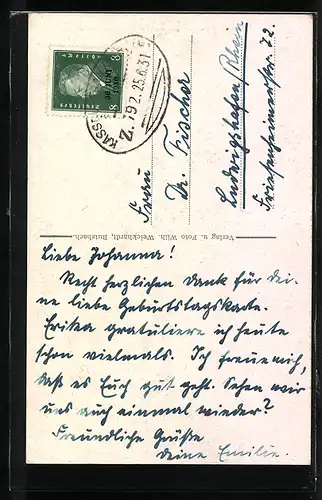 8 Deutsches Reich 8
Z. 792. 25.6.31
Frau
Dr. Fischer
Ludwigshafen/Rhein
Friesenheimerstr. 72.
Verlag u. Foto Wilh. Weickhardt, Butzbach.
Liebe Johanna!
Recht herzlichen Dank für dei-
ne liebe Geburtstagskarte.
Erika gratuliere ich heute
schon vielmals. Ich freue mich,
daß es Euch gut geht. Sehen wir
uns auch einmal wieder?
Freundliche Grüße
deine Emilie.